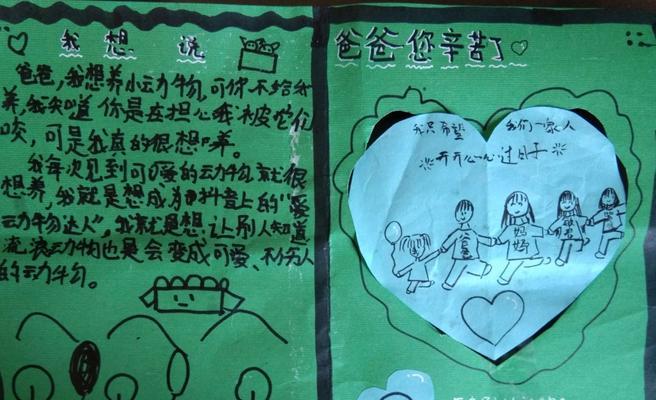 我想说
爸爸,我想养小动物,可你不给我
养,我知道你是在担心我被它们
咬,可是我真的很想养。
我每次见到可爱的动物就很
想养,我就是想成为抖音上的“爱
动物达人”,我就是想让别人知道
流浪动物也是会变成可爱、不伤人
的动物。
爸爸您辛苦了
我只希望 我们一家人
开开心心过日子
爸爸
妈妈